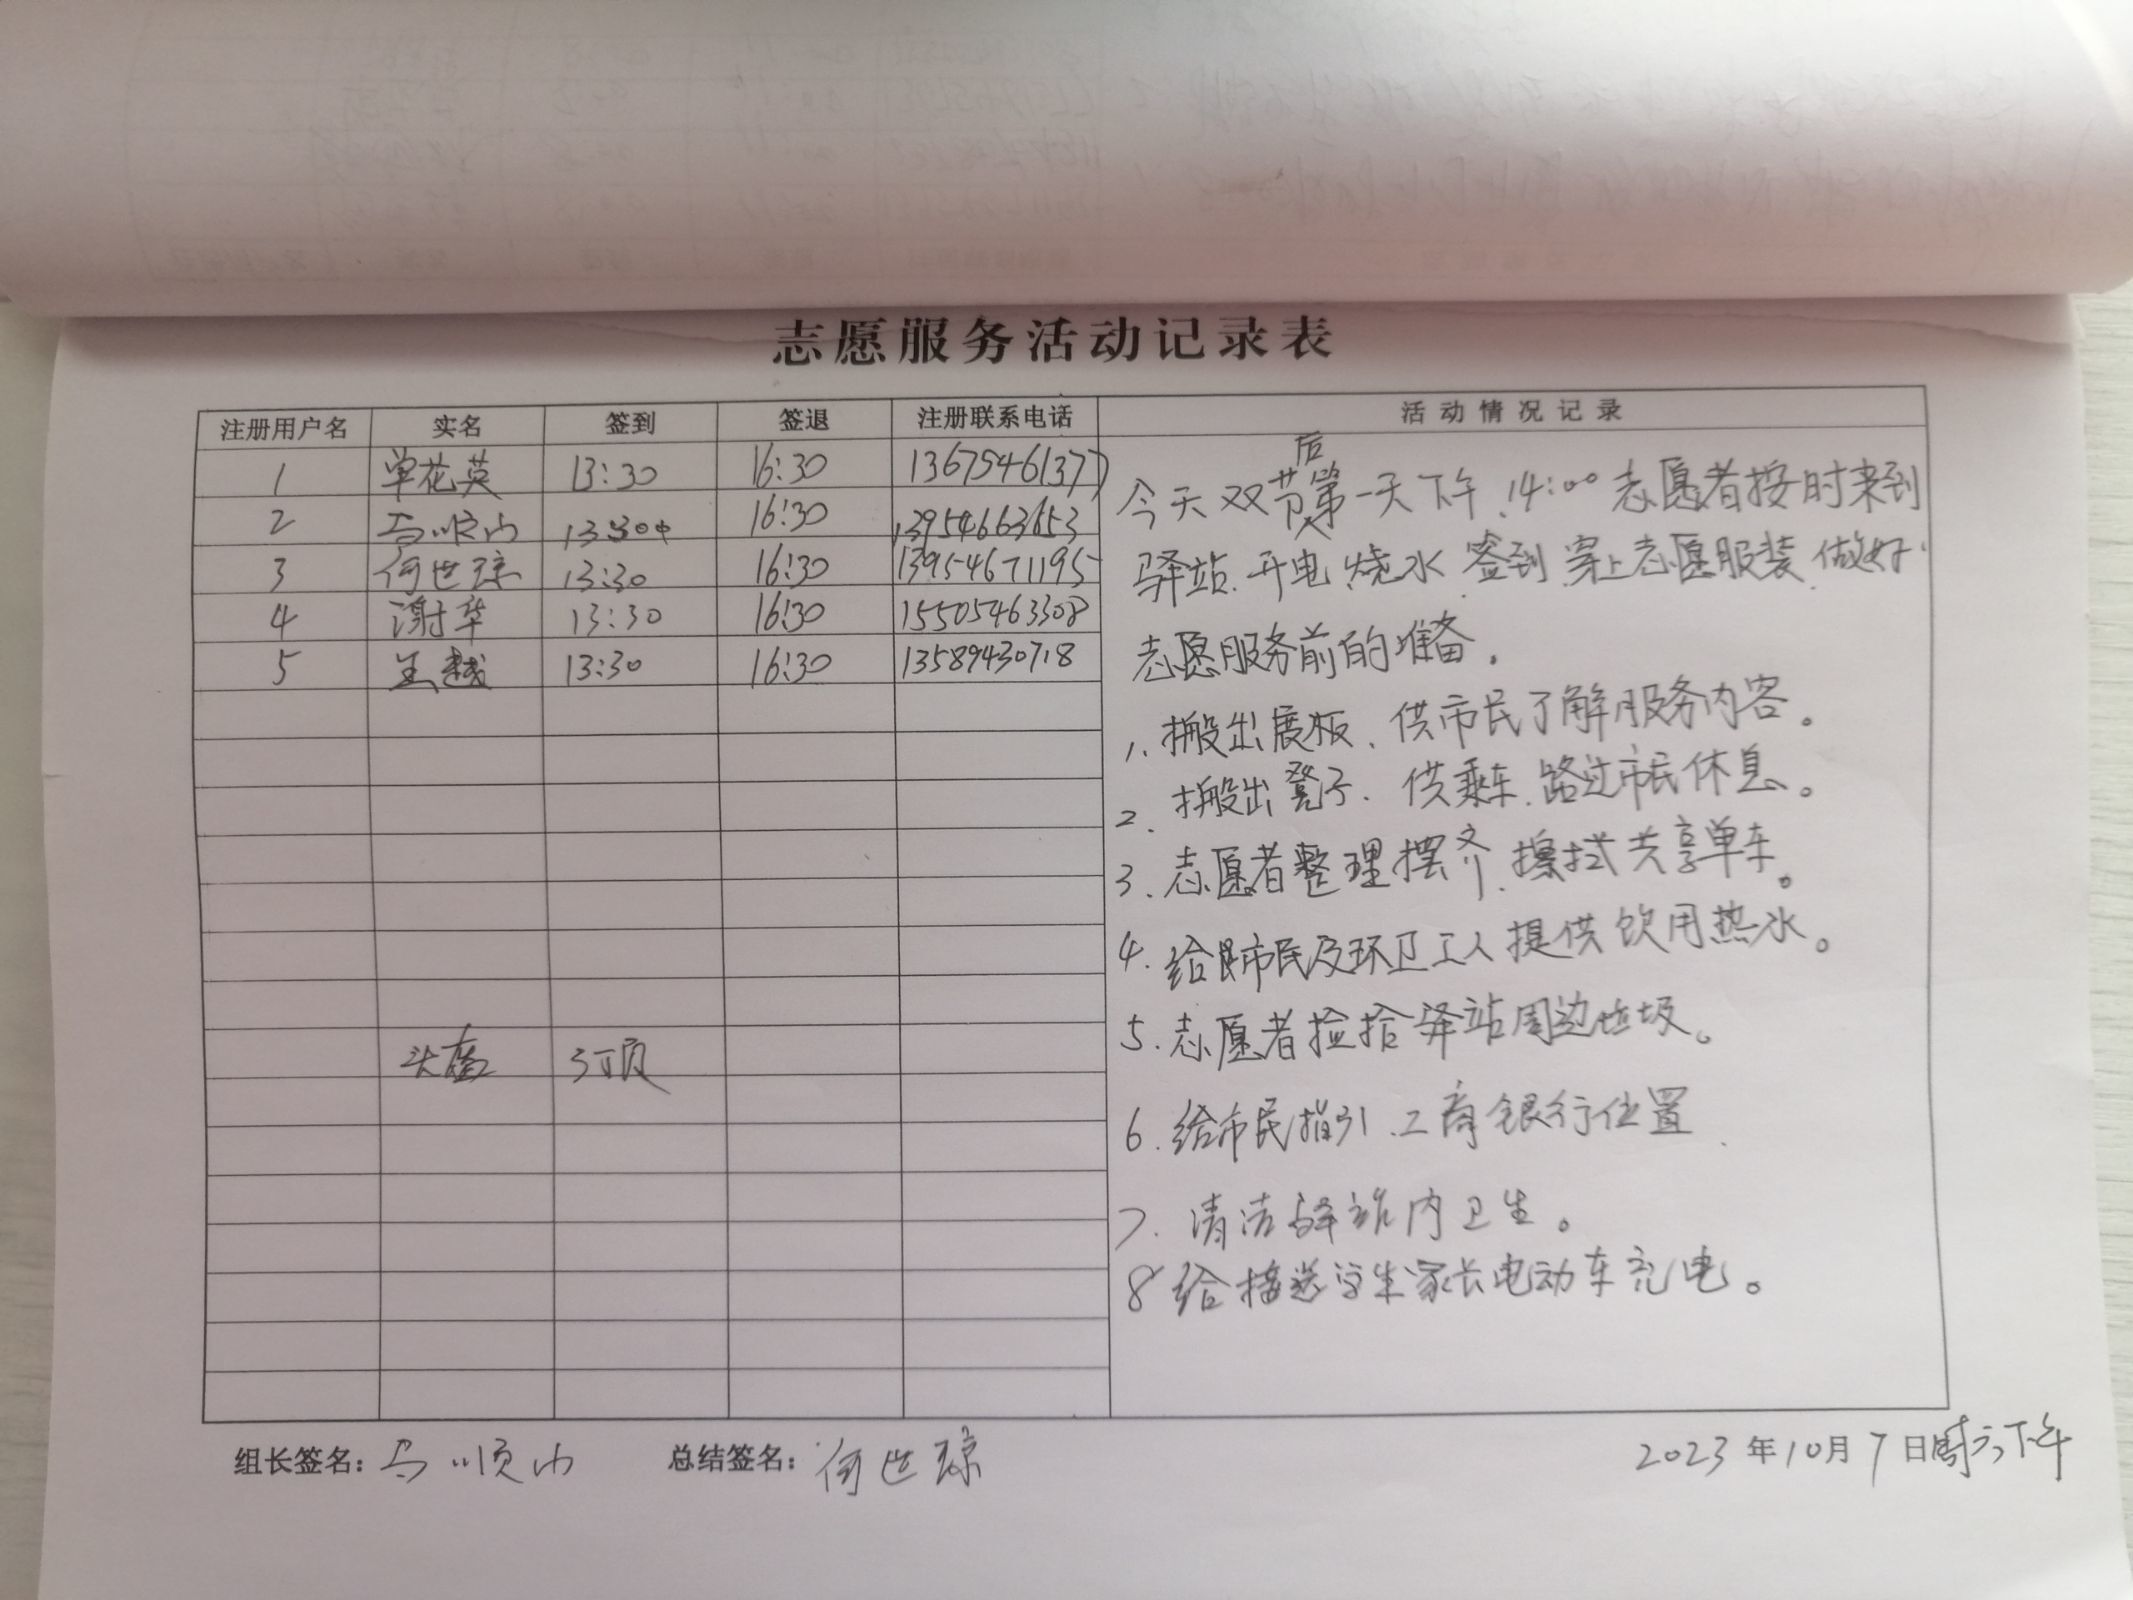 志愿服务活动记录表
注册用户名 实名 签到 签退 注册联系电话 活动情况记录
1 单花英 13:30 16:30 13675461377
2 马顺山 13:30 16:30 13954663653
3 何世琼 13:30 16:30 13954671195
4 谢华 13:30 16:30 15505463308
5 王越 13:30 16:30 13589430718
头盔 3顶
今天双节后第一天下午.14:00志愿者按时来到
驿站.开电烧水 签到 穿上志愿服装.做好
志愿服务前的准备.
1.搬出展板、供市民了解服务内容。
2.搬出凳子.供乘车.路过市民休息。
3.志愿者整理摆齐.擦拭共享单车。
4.给市民及环卫工人提供饮用热水。
5.志愿者捡拾驿站周边垃圾。
6.给市民指引.工商银行位置.
7.清洁驿站内卫生。
8给接送学生家长电动车充电。
组长签名：马顺山 总结签名：何世琼 2023年10月7日周六下午